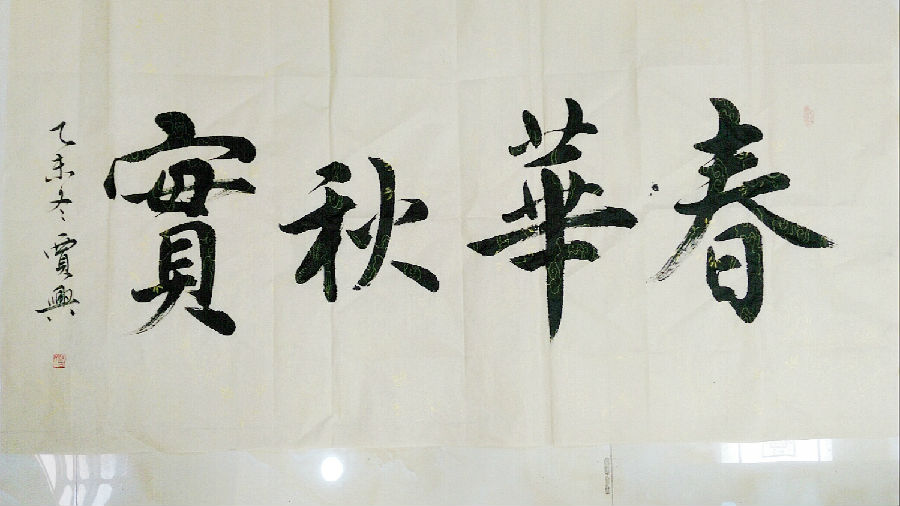 春華秋實
乙未冬賈興